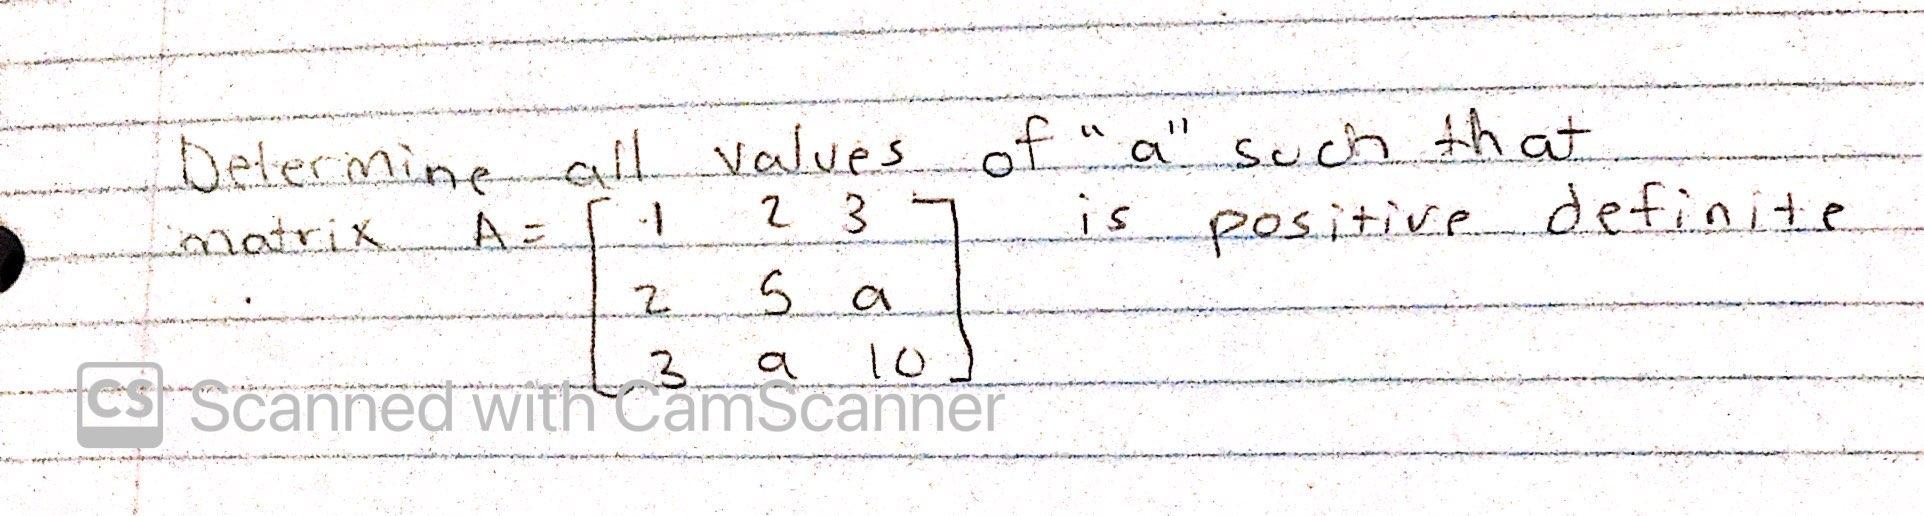 Determine all values of "a" such that
matrix A = [ 1 2 3 ] is positive definite
2 5 a
3 a 10
CS Scanned with CamScanner